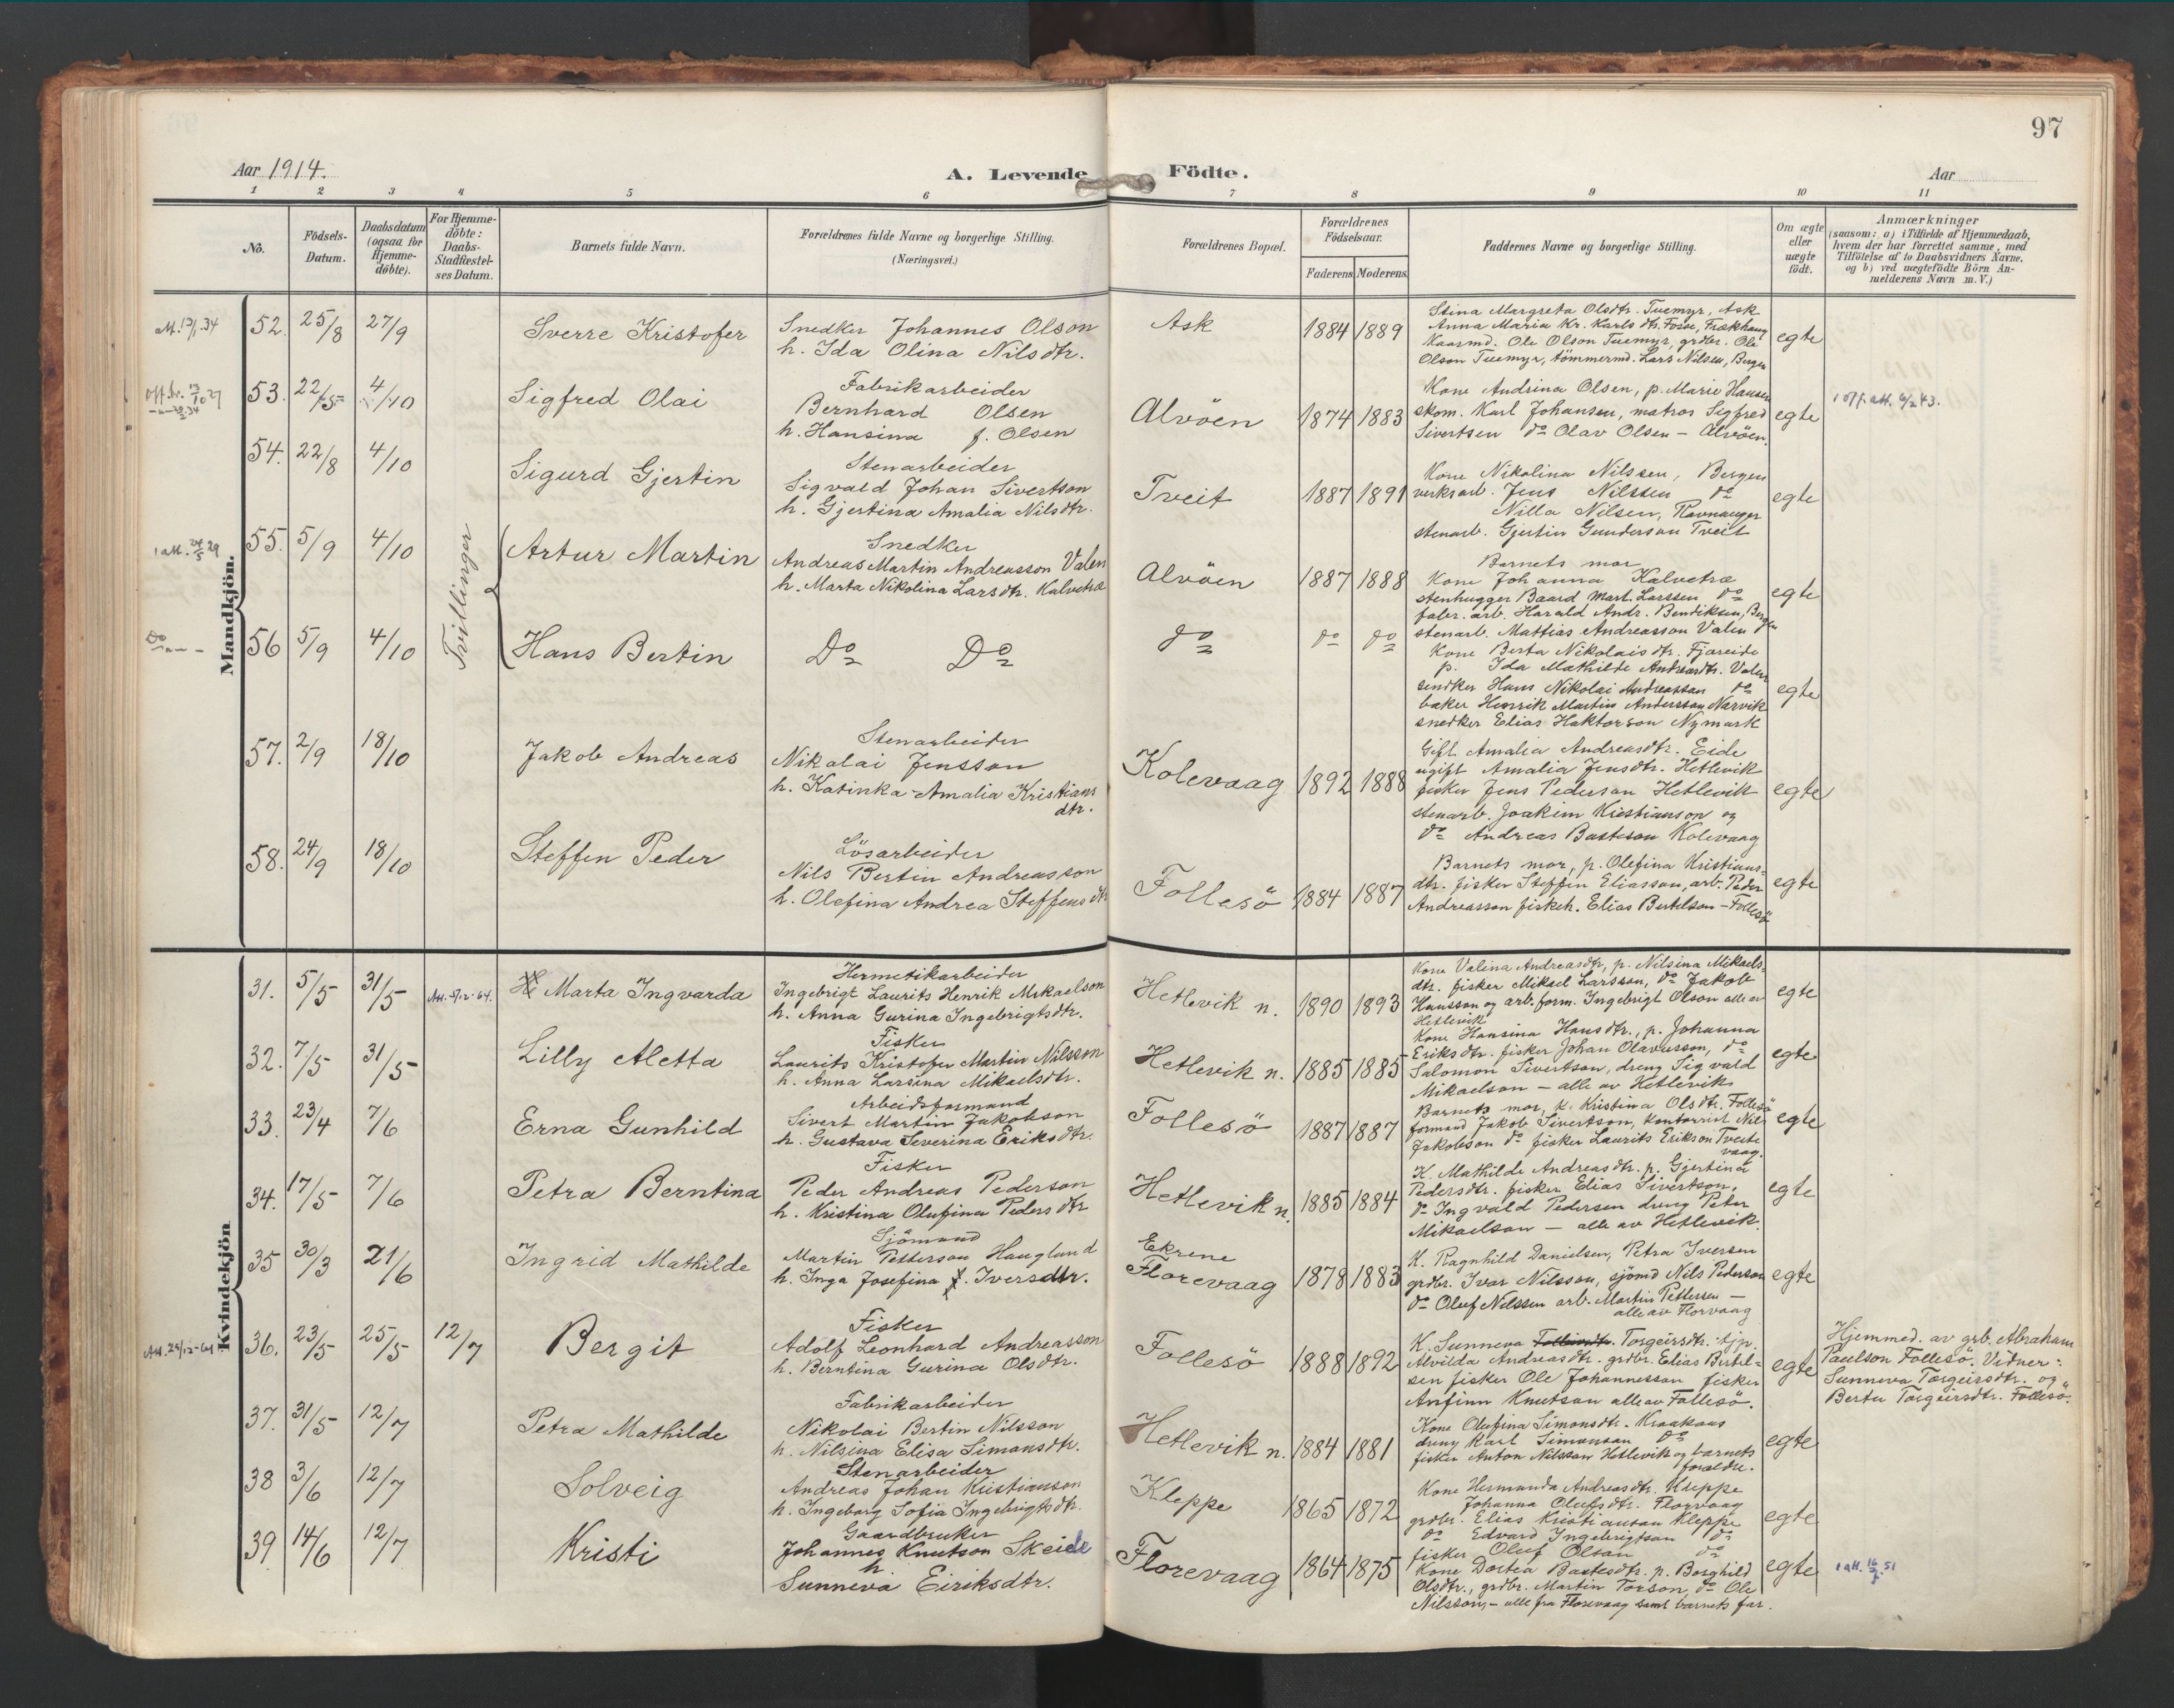 97
Aar 1914.
A. Levende
Födte.
Aar
1 2 3 4 5 6 7 8 9 10 11
No.
Födsels-
Datum.
Daabsdatum
(ogsaa for
Hjemme-
döbte).
For Hjemme-
döbte:
Daabs-
Stadfæstel-
ses Datum.
Barnets fulde Navn.
Forældrenes fulde Navne og borgerlige Stilling.
(Næringsvei.)
Forældrenes Bopæl.
Forældrenes
Födselsaar.
Faderens Moderens
Faddernes Navne og borgerlige Stilling.
Om ægte
eller
uægte
födt.
Anmærkninger
(saasom: a) i Tilfælde af Hjemmedaab,
hvem der har forrettet samme, med
Tilföielse af to Daabsvidners Navne.
og b) ved uægtefödte Börn An-
melderens Navn m.V.)
Mandkjön.
52. 25/8 27/9
Sverre Kristofer
Snedker Johannes Olson
h. Ida Olina Nilsdtr.
Ask
1884 1889
Stina Margreta Olsdtr. Tuemyr, Ask
Anna Maria Kr. Karlsdtr. Fosse, Frækhaug
Kaarmd. Ole Olson Tuemyr, grdbr. Ole
Olson Tuemyr, tömmermd. Lars Nilsen, Bergen
egte
53. 22/5 4/10
Sigfred Olai
Fabrikarbeider
Bernhard Olsen
h. Hansina f. Olsen
Alvöen
1874 1883
Kone Andrina Olsen, p. Marie Hansen
skom. Karl Johansen, matros Sigfred
Sivertsen do Olav Olsen - Alvöen.
egte
54. 22/8 4/10
Sigurd Gjertin
Stenarbeider
Sigvald Johan Sivertson
h. Gjertina Amalia Nilsdtr.
Tveit
1887 1891
Kone Nikolina Nilssen, Bergen
verksarb. Jens Nilssen do
Nilla Nilsen, Ravnanger
stenarb. Gjertin Gunderson Tveit
egte
Tvillinger
55. 5/9 4/10
Artur Martin
Snedker
Andreas Martin Andreasson Valen
h. Marta Nikolina Larsdtr. Kalvetræ
Alvöen
1887 1888
Barnets mor
Kone Johanna Kalvetræ
stenhugger Baard Mart. Larssen do
fabr. arb. Harald Andr. Bendiksen, Bergen
stenarb. Mattias Andreasson Valen
egte
56 5/9 4/10
Hans Bertin
Do Do
do
do do
Kone Berta Nikolaisdtr. Fjæreide
p. Ida Mathilde Andreasdtr. Valen
snedker Hans Nikolai Andreasson do
baker Henrik Martin Andersson Narvik
snedker Elias Haktorson Nymark
egte
57. 2/9 18/10
Jakob Andreas
Stenarbeider
Nikolai Jensson
h. Katinka Amalia Kristians
dtr.
Kolevaag
1892 1888
Gift Amalia Andreasdtr. Eide
ugift Amalia Jensdtr. Hetlevik
fisker Jens Pederson Hetlevik
stenarb. Joakim Kristianson og
do Andreas Basteson Kolevaag
egte
58. 24/9 18/10
Steffen Peder
Lösarbeider
Nils Bertin Andreasson
h. Olefina Andrea Steffensdtr
Follesö
1884 1887
Barnets mor, p. Olefina Kristians-
dtr. fisker Steffen Eliasson, arb. Peder
Andreasson fiskeh. Elias Bertelson - Follesö
egte
Kvindekjön
31. 5/5 31/5
Att. 5/12-64.
Marta Ingvarda
Hermetikarbeider
Ingebrigt Laurits Henrik Mikaelson
h. Anna Gurina Ingebrigtsdtr.
Hetlevik n.
1890 1893
Kone Valina Andreasdtr, p. Nilsina Mikaels-
dtr. fisker Mikael Larsson, do Jakob
Hansson og arb.form. Ingebrigt Olson alle av
Hetlevik
egte
32. 7/5 31/5
Lilly Aletta
Fisker
Laurits Kristofer Martin Nilsson
h. Anna Larsina Mikaelsdtr.
Hetlevik n.
1885 1885
Kone Hansina Hansdtr., p. Johanna
Eriksdtr. fisker Johan Olavusson, do
Salomon Sivertson, dreng Sigvald
Mikaelson - alle av Hetlevik
egte
33. 23/4 7/6
Erna Gunhild
Arbeidsformand
Sivert Martin Jakobson
h. Gustava Severina Eriksdtr.
Follesö
1887 1887
Barnets mor, K. Kristina Olsdtr. Follesö
formand Jakob Sivertson, kontorist Nils
Jakobson do fisker Laurits Erikson Tveite
vaag.
egte
34. 17/5 7/6
Petra Berntina
Fisker
Peder Andreas Pederson
h. Kristina Olufina Pedersdtr
Hetlevik n.
1885 1884
K. Mathilde Andreasdtr. p. Gjertina
Pedersdtr. fisker Elias Sivertson,
do Ingvald Pedersen dreng Peter
Mikaelson - alle av Hetlevik.
egte
35 30/3 21/6
Ingrid Mathilde
Sjömand
Martin Petterson Haugland
h. Inga Josefina f. Iversdtr.
Ekrene
Florevaag
1878 1883
K. Ragnhild Danielsen, Petra Iversen
grdbr. Ivar Nilsson, sjömd Nils Pederson
do Oluf Nilssen arb. Martin Pettersen -
alle av Florvaag
egte
36. 23/5 25/5 12/7
Bergit
Fisker
Adolf Leonhard Andreasson
h. Berntina Gurina Olsdtr.
Follesö
1888 1892
K. Sunneva Torgeirsdtr. tjp.
Alvilda Andreasdtr. grdbr. Elias Bertel-
sen fisker Ole Johannesson fisker
Anfinn Knutson alle av Follesö.
egte
Hjemmed. av grb. Abraham
Paulson Follesö. Vidner:
Sunneva Torgeirsdtr. og
Berta Torgeirsdtr. Follesö.
37. 31/5 12/7
Petra Mathilde
Fabrikarbeider
Nikolai Bertin Nilsson
h. Nilsina Elisa Simonsdtr.
Hetlevik n.
1884 1881
Kone Olufina Simonsdtr. Kraakaas
dreng Karl Simonson do
fisker Anton Nilsson Hetlevik og barnets
forældre.
egte
38 3/6 12/7
Solveig
Stenarbeider
Andreas Johan Kristianson
h. Ingeborg Sofia Ingebrigtsdtr.
Kleppe
1865 1872
Kone Hermanda Andreasdtr. Kleppe
Johanna Olufsdtr. Florvaag
grdbr. Elias Kristianson Kleppe
do Edvard Ingebrigtson do
fisker Oluf Olson do
egte
39. 14/6 12/7
Kristi
Gaardbruker
Johannes Knutson Skeide
h
Sunneva Eiriksdtr.
Florevaag
1864 1875
Kone Dortea Bastesdtr. p. Borghild
Olsdtr., grdbr. Martin Torson, do Ole
Nilsson, - alle fra Florevaag samt barnets far.
egte